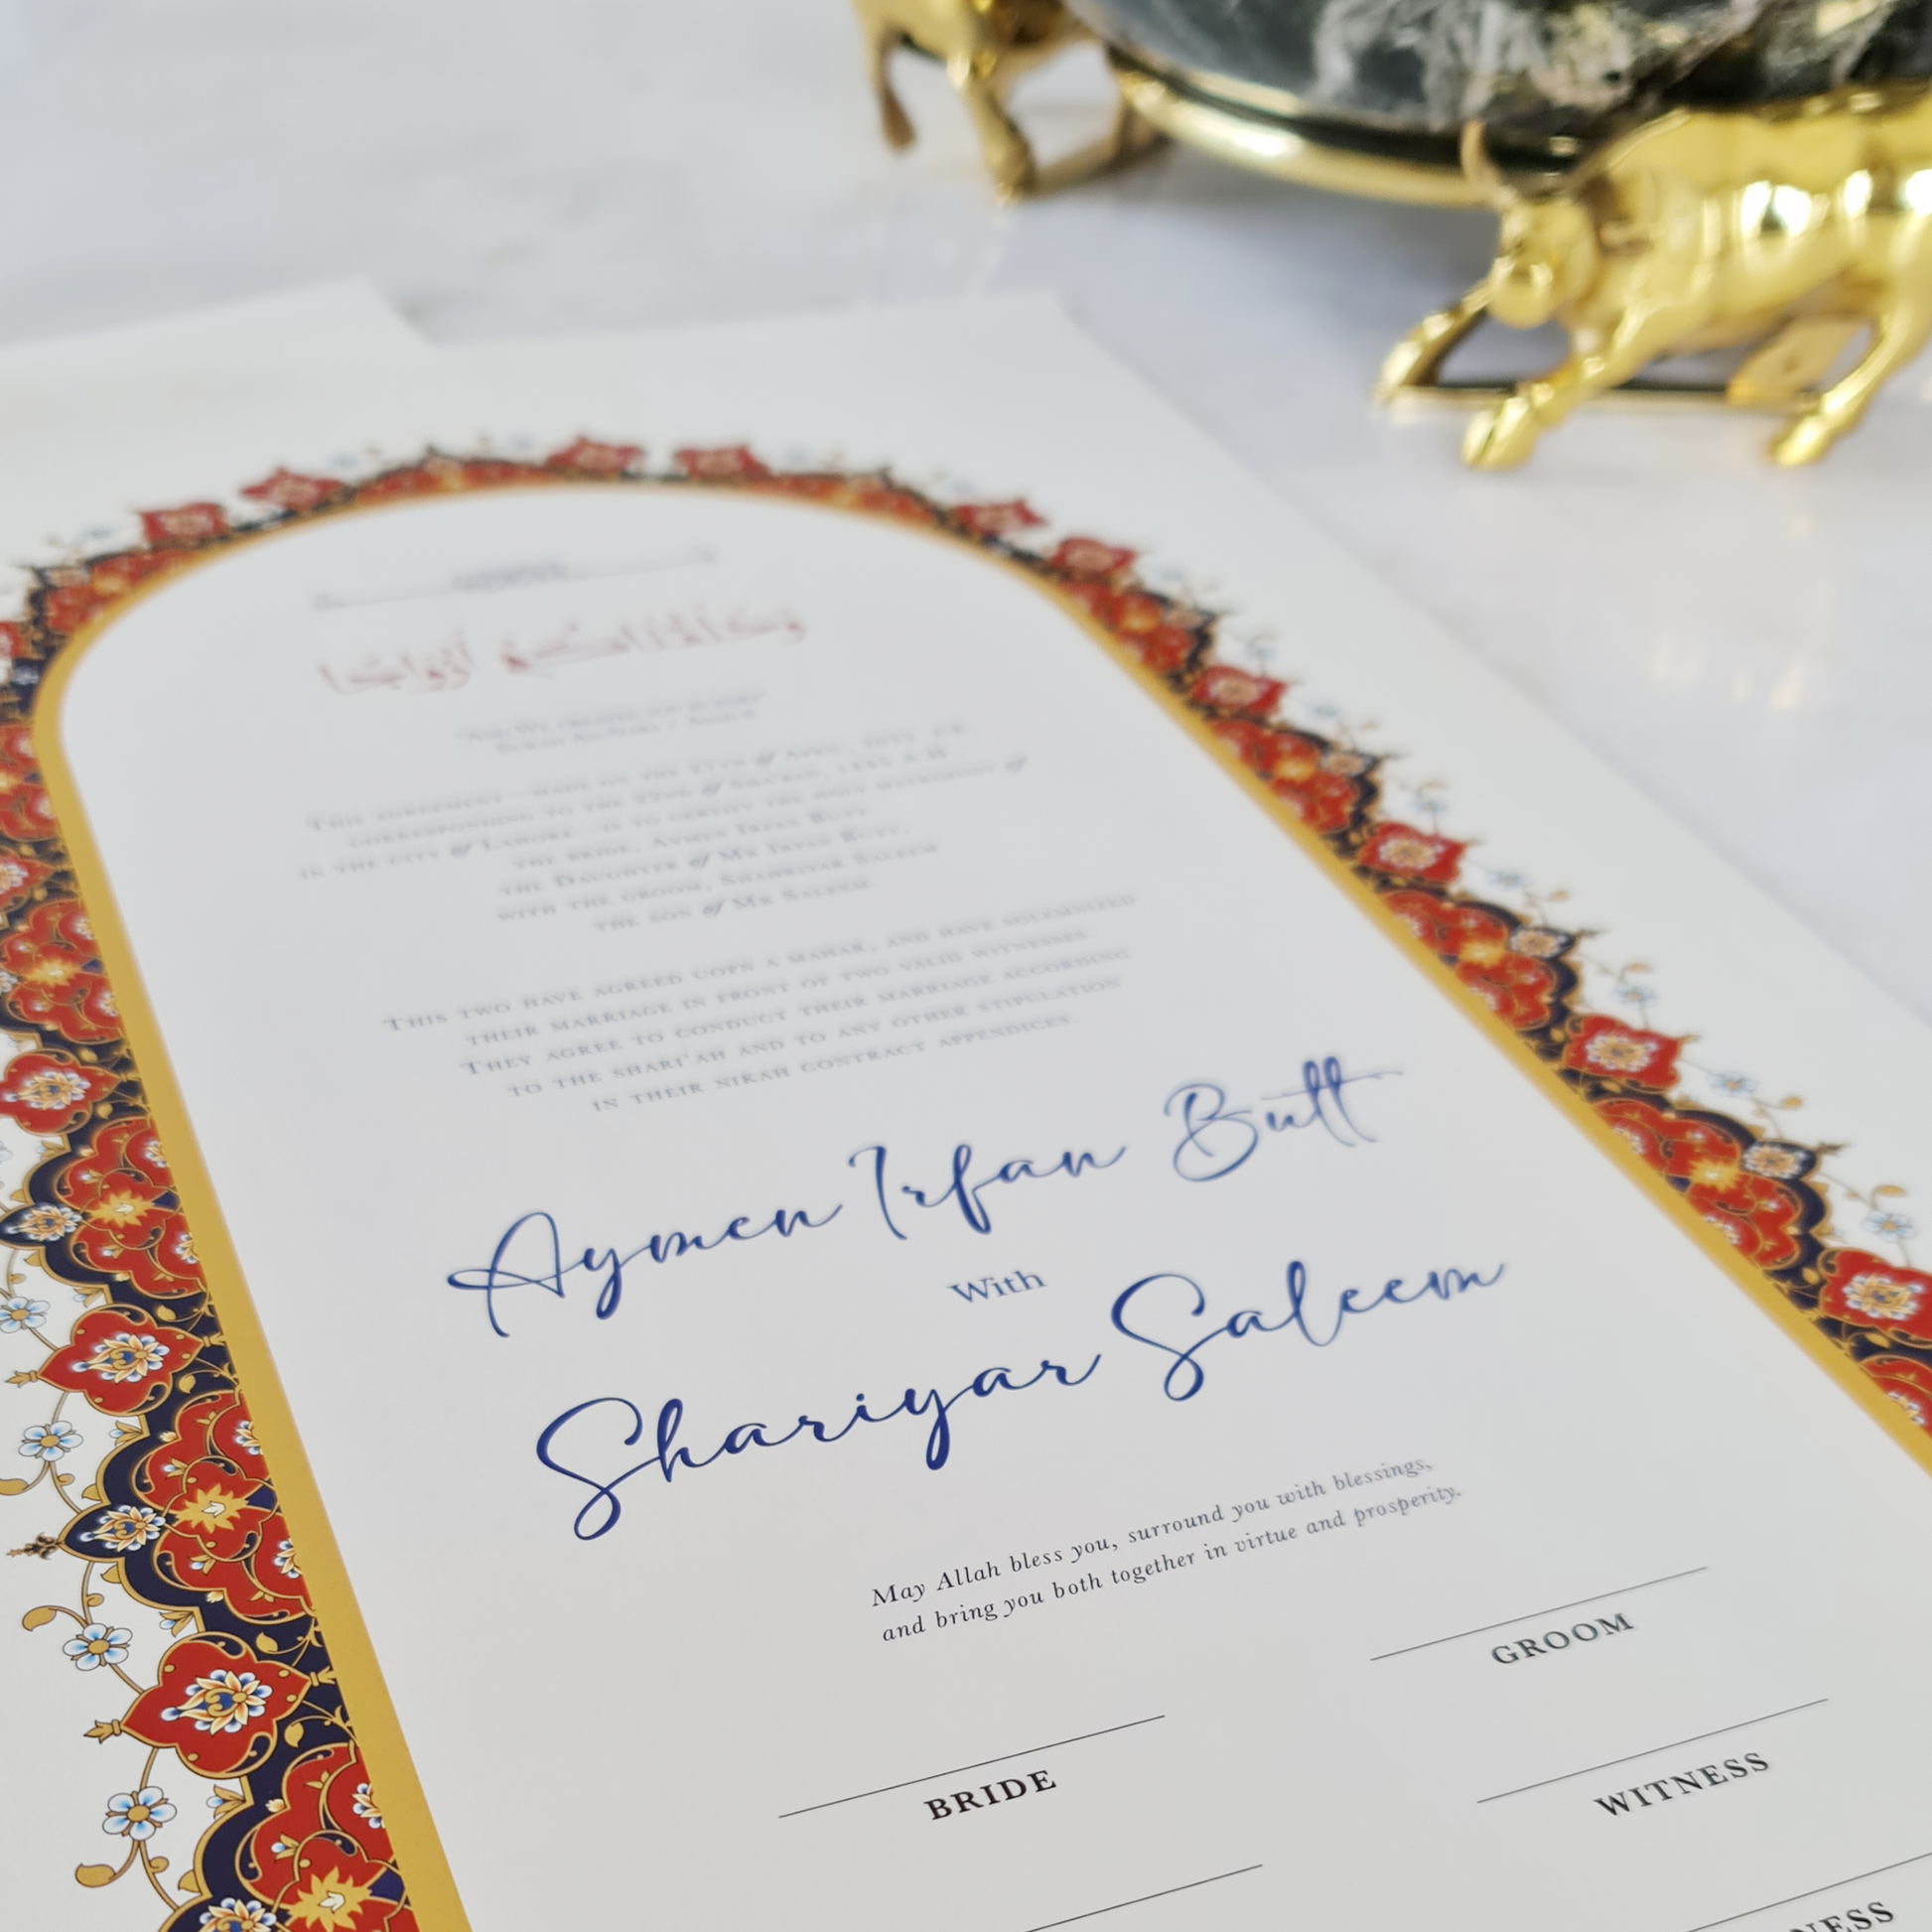 وخلقناكم أزواجا
THIS AGREEMENT—MADE ON THE 27TH of APRIL,
CORRESPONDING TO THE 22ND of SHA'BAN,
IN THE CITY of LAHORE—IS TO CERTIFY THE HOLY MATRIMONY of
THE BRIDE, AYMEN IRFAN BUTT
THE DAUGHTER of MR IRFAN BUTT,
WITH THE GROOM, SHAHRIYAR SALEEM
THE SON of MR SALEEM.
THIS TWO HAVE AGREED UOPN A MAHAR, AND HAVE SOLEMNIZED
THEIR MARRIAGE IN FRONT OF TWO VALID WITNESSES.
THEY AGREE TO CONDUCT THEIR MARRIAGE ACCORDING
TO THE SHARI'AH AND TO ANY OTHER STIPULATION
IN THEIR NIKAH CONTRACT APPENDICES.
Aymen Irfan Butt
With
Shariyar Saleem
May Allah bless you, surround you with blessings,
and bring you both together in virtue and prosperity.
GROOM
BRIDE
WITNESS